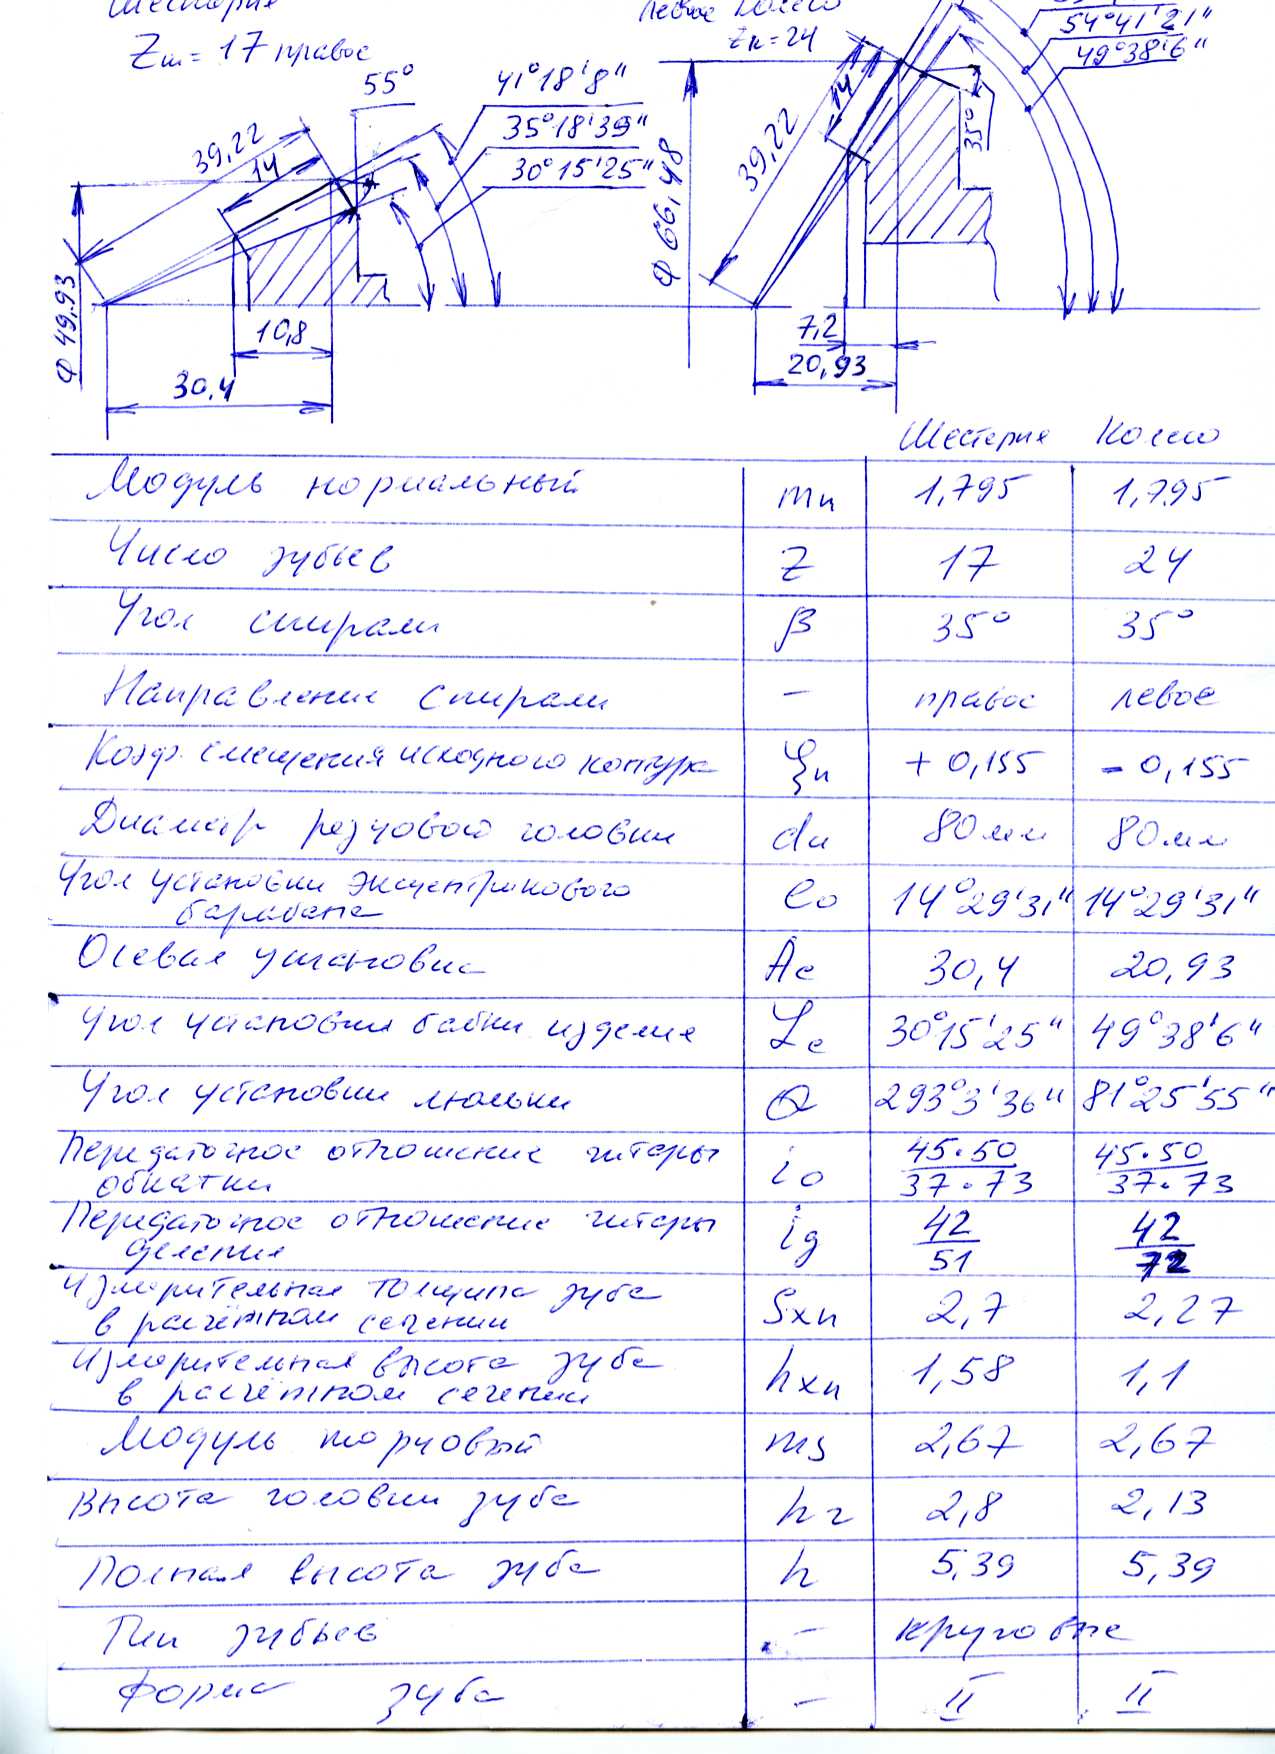 Шестерня
Zш = 17 правое
55°
41°18'8"
35°18'39"
30°15'25"
39,22
14
Ф 49,93
10,8
30,4
левое колесо
Zк = 24
54°41'21"
49°38'6"
39,22
14
35°
Ф 66,48
7,2
20,93
Шестерня Колесо
Модуль нормальный mn 1,795 1,795
Число зубьев Z 17 24
Угол спирали β 35° 35°
Направление спирали – правое левое
Коэф. смещения исходного контура ξn + 0,155 - 0,155
Диаметр резцовой головки du 80 мм 80 мм
Угол установки эксцентрикового
барабана eo 14°29'31" 14°29'31"
Осевая установка Ac 30,4 20,93
Угол установки бабки изделия Lc 30°15'25" 49°38'6"
Угол установки люльки Q 293°3'36" 81°25'55"
Передаточное отношение гитары
обкатки io 45·50/37·73 45·50/37·73
Передаточное отношение гитары
деления ig 42/51 42/72
Измерительная толщина зуба
в расчётном сечении Sxn 2,7 2,27
Измерительная высота зуба
в расчётном сечении hxn 1,58 1,1
Модуль торцовый ms 2,67 2,67
Высота головки зуба hг 2,8 2,13
Полная высота зуба h 5,39 5,39
Тип зубьев – круговые
Форма зуба – II II